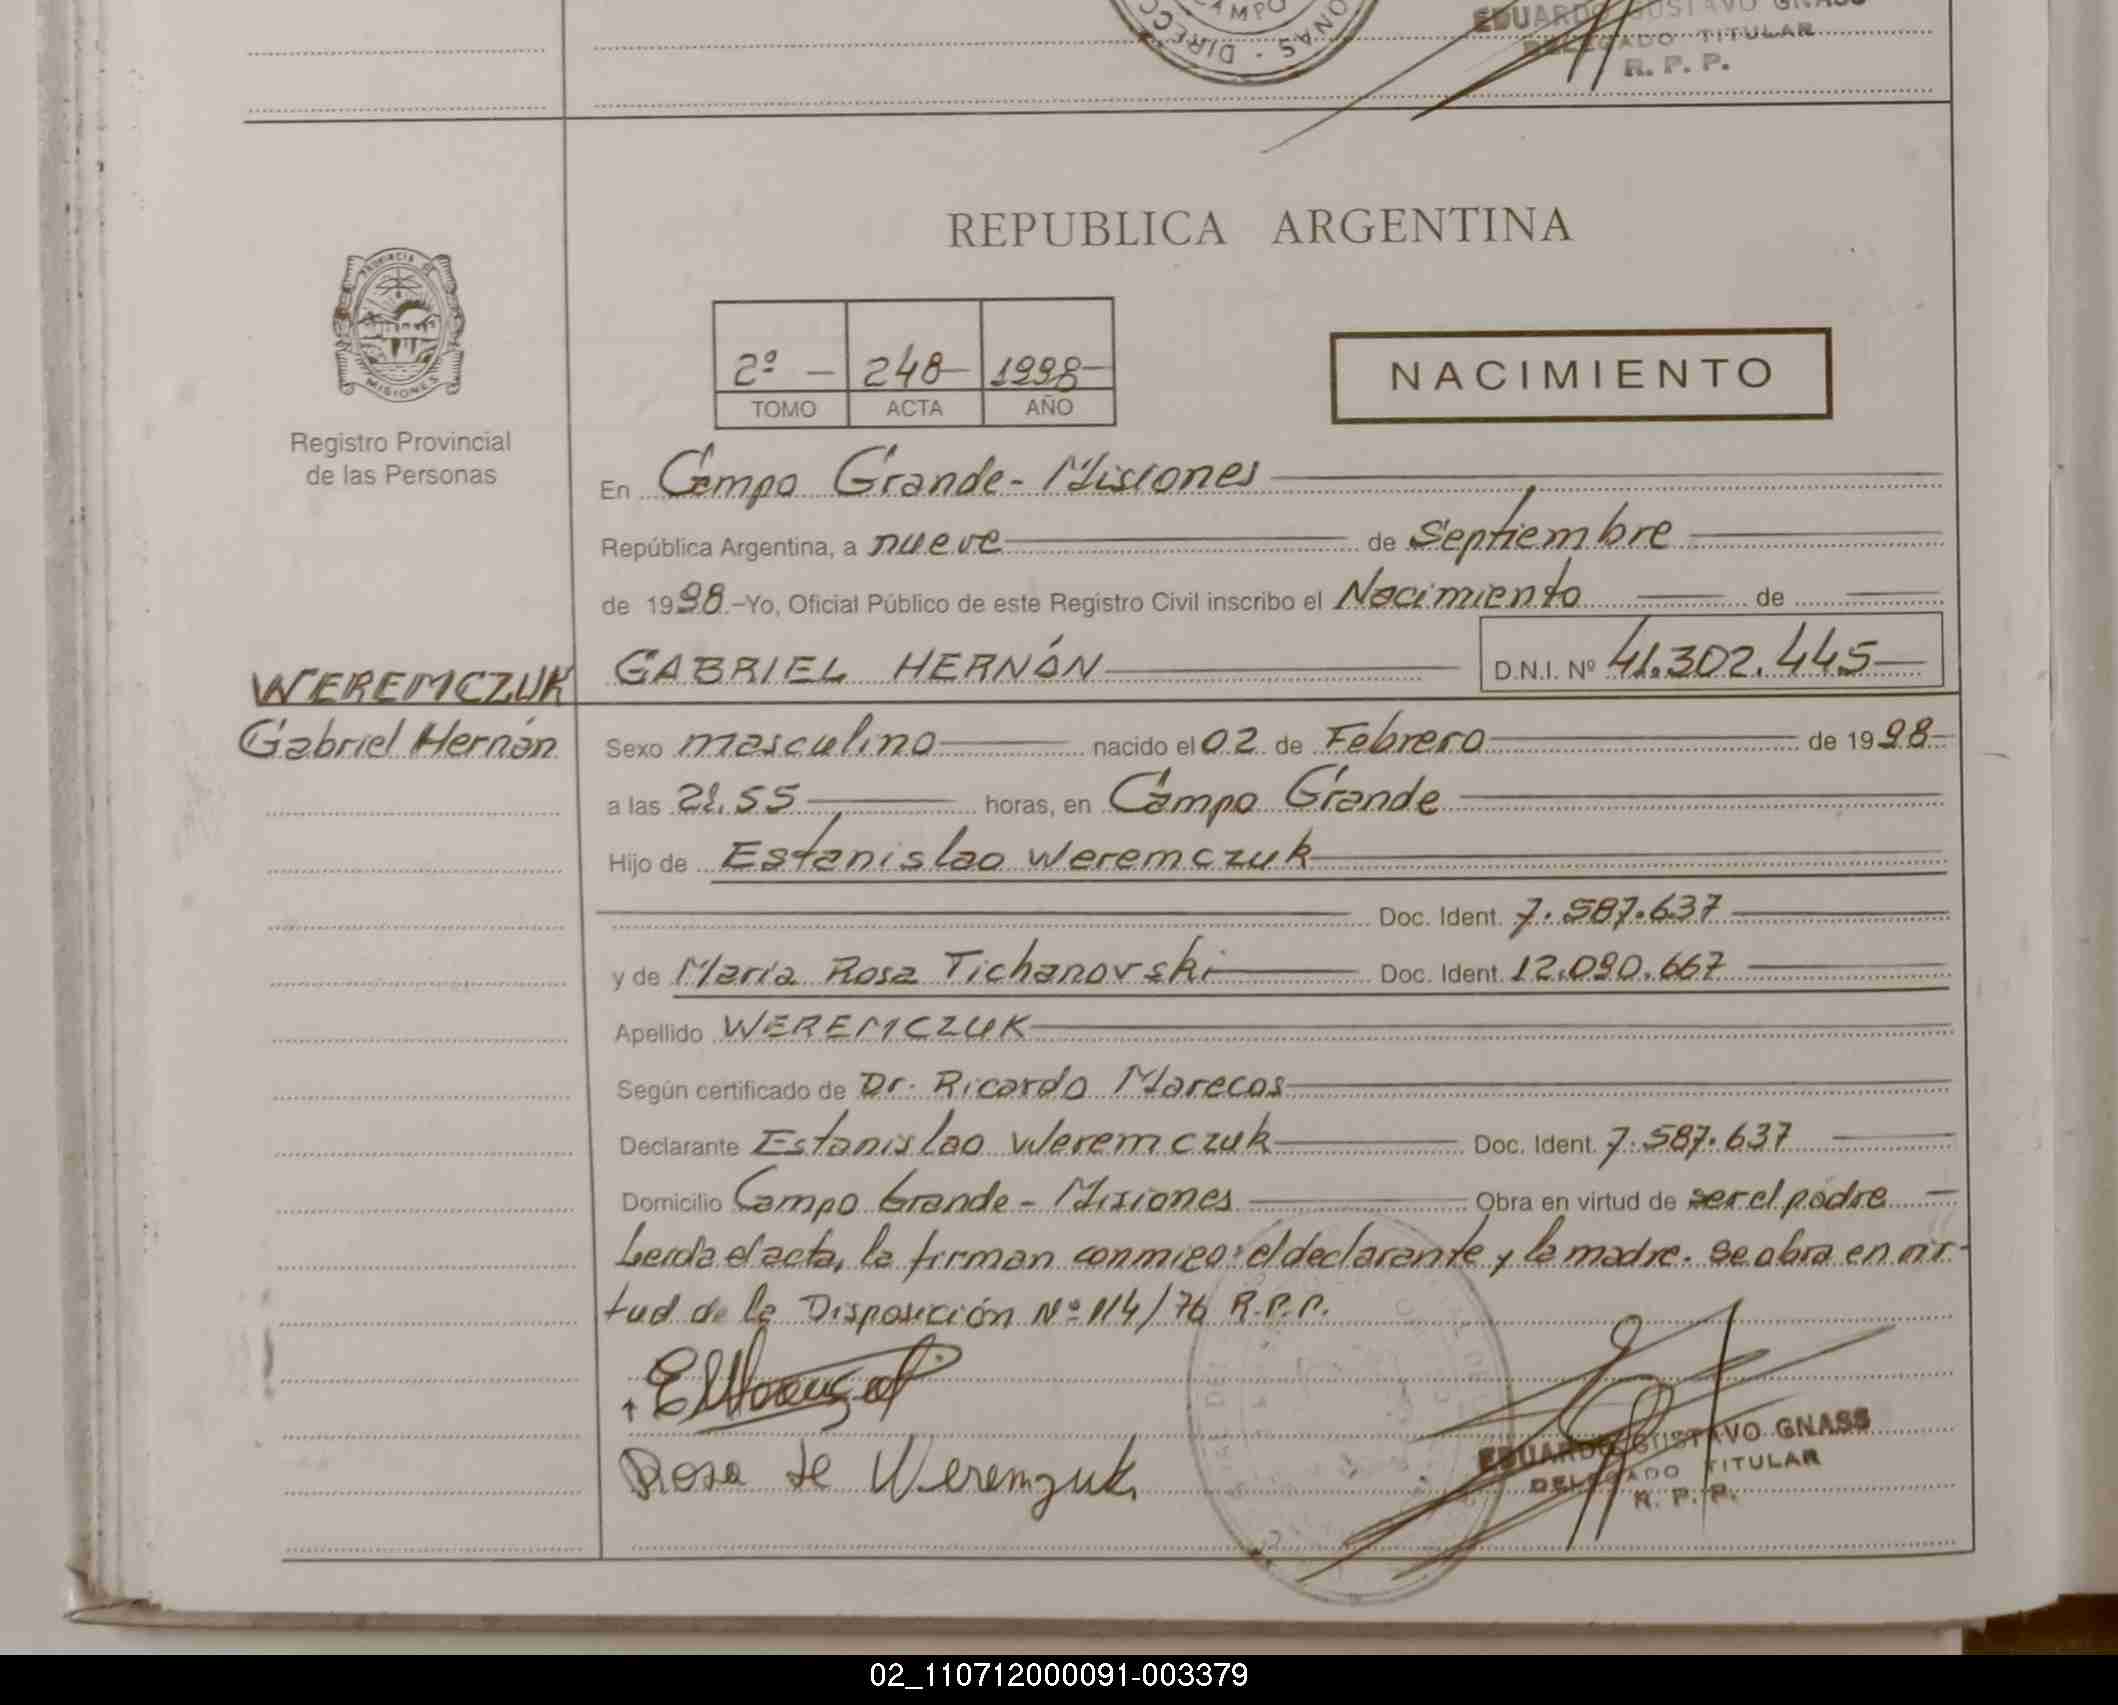 CAMPO
DIRECC
ONAS -
EDUARDO GUSTAVO GNASS
DELEGADO TITULAR
R. P. P.
REPUBLICA ARGENTINA
PROVINCIA DE
MISIONES
Registro Provincial
de las Personas
2º - 248- 1998-
TOMO ACTA AÑO
NACIMIENTO
En Campo Grande - Misiones
República Argentina, a nueve de Septiembre
de 1998.-Yo, Oficial Público de este Registro Civil inscribo el Nacimiento de
WEREMCZUK
Gabriel Hernán
GABRIEL HERNÁN D.N.I. Nº 41.302.445
Sexo masculino nacido el 02 de Febrero de 1998-
a las 21.55 horas, en Campo Grande
Hijo de Estanislao Weremczuk
Doc. Ident. 7.587.637
y de María Rosa Tichanovski Doc. Ident. 12.090.667
Apellido WEREMCZUK
Según certificado de Dr. Ricardo Marecos
Declarante Estanislao Weremczuk Doc. Ident. 7.587.637
Domicilio Campo Grande - Misiones Obra en virtud de ser el padre
Leída el acta, la firman conmigo: el declarante y la madre. Se obra en vir-
tud de la Disposición Nº 114/76 R.P.P.
Rosa de Weremzuk
EDUARDO GUSTAVO GNASS
DELEGADO TITULAR
R. P. P.
02_110712000091-003379